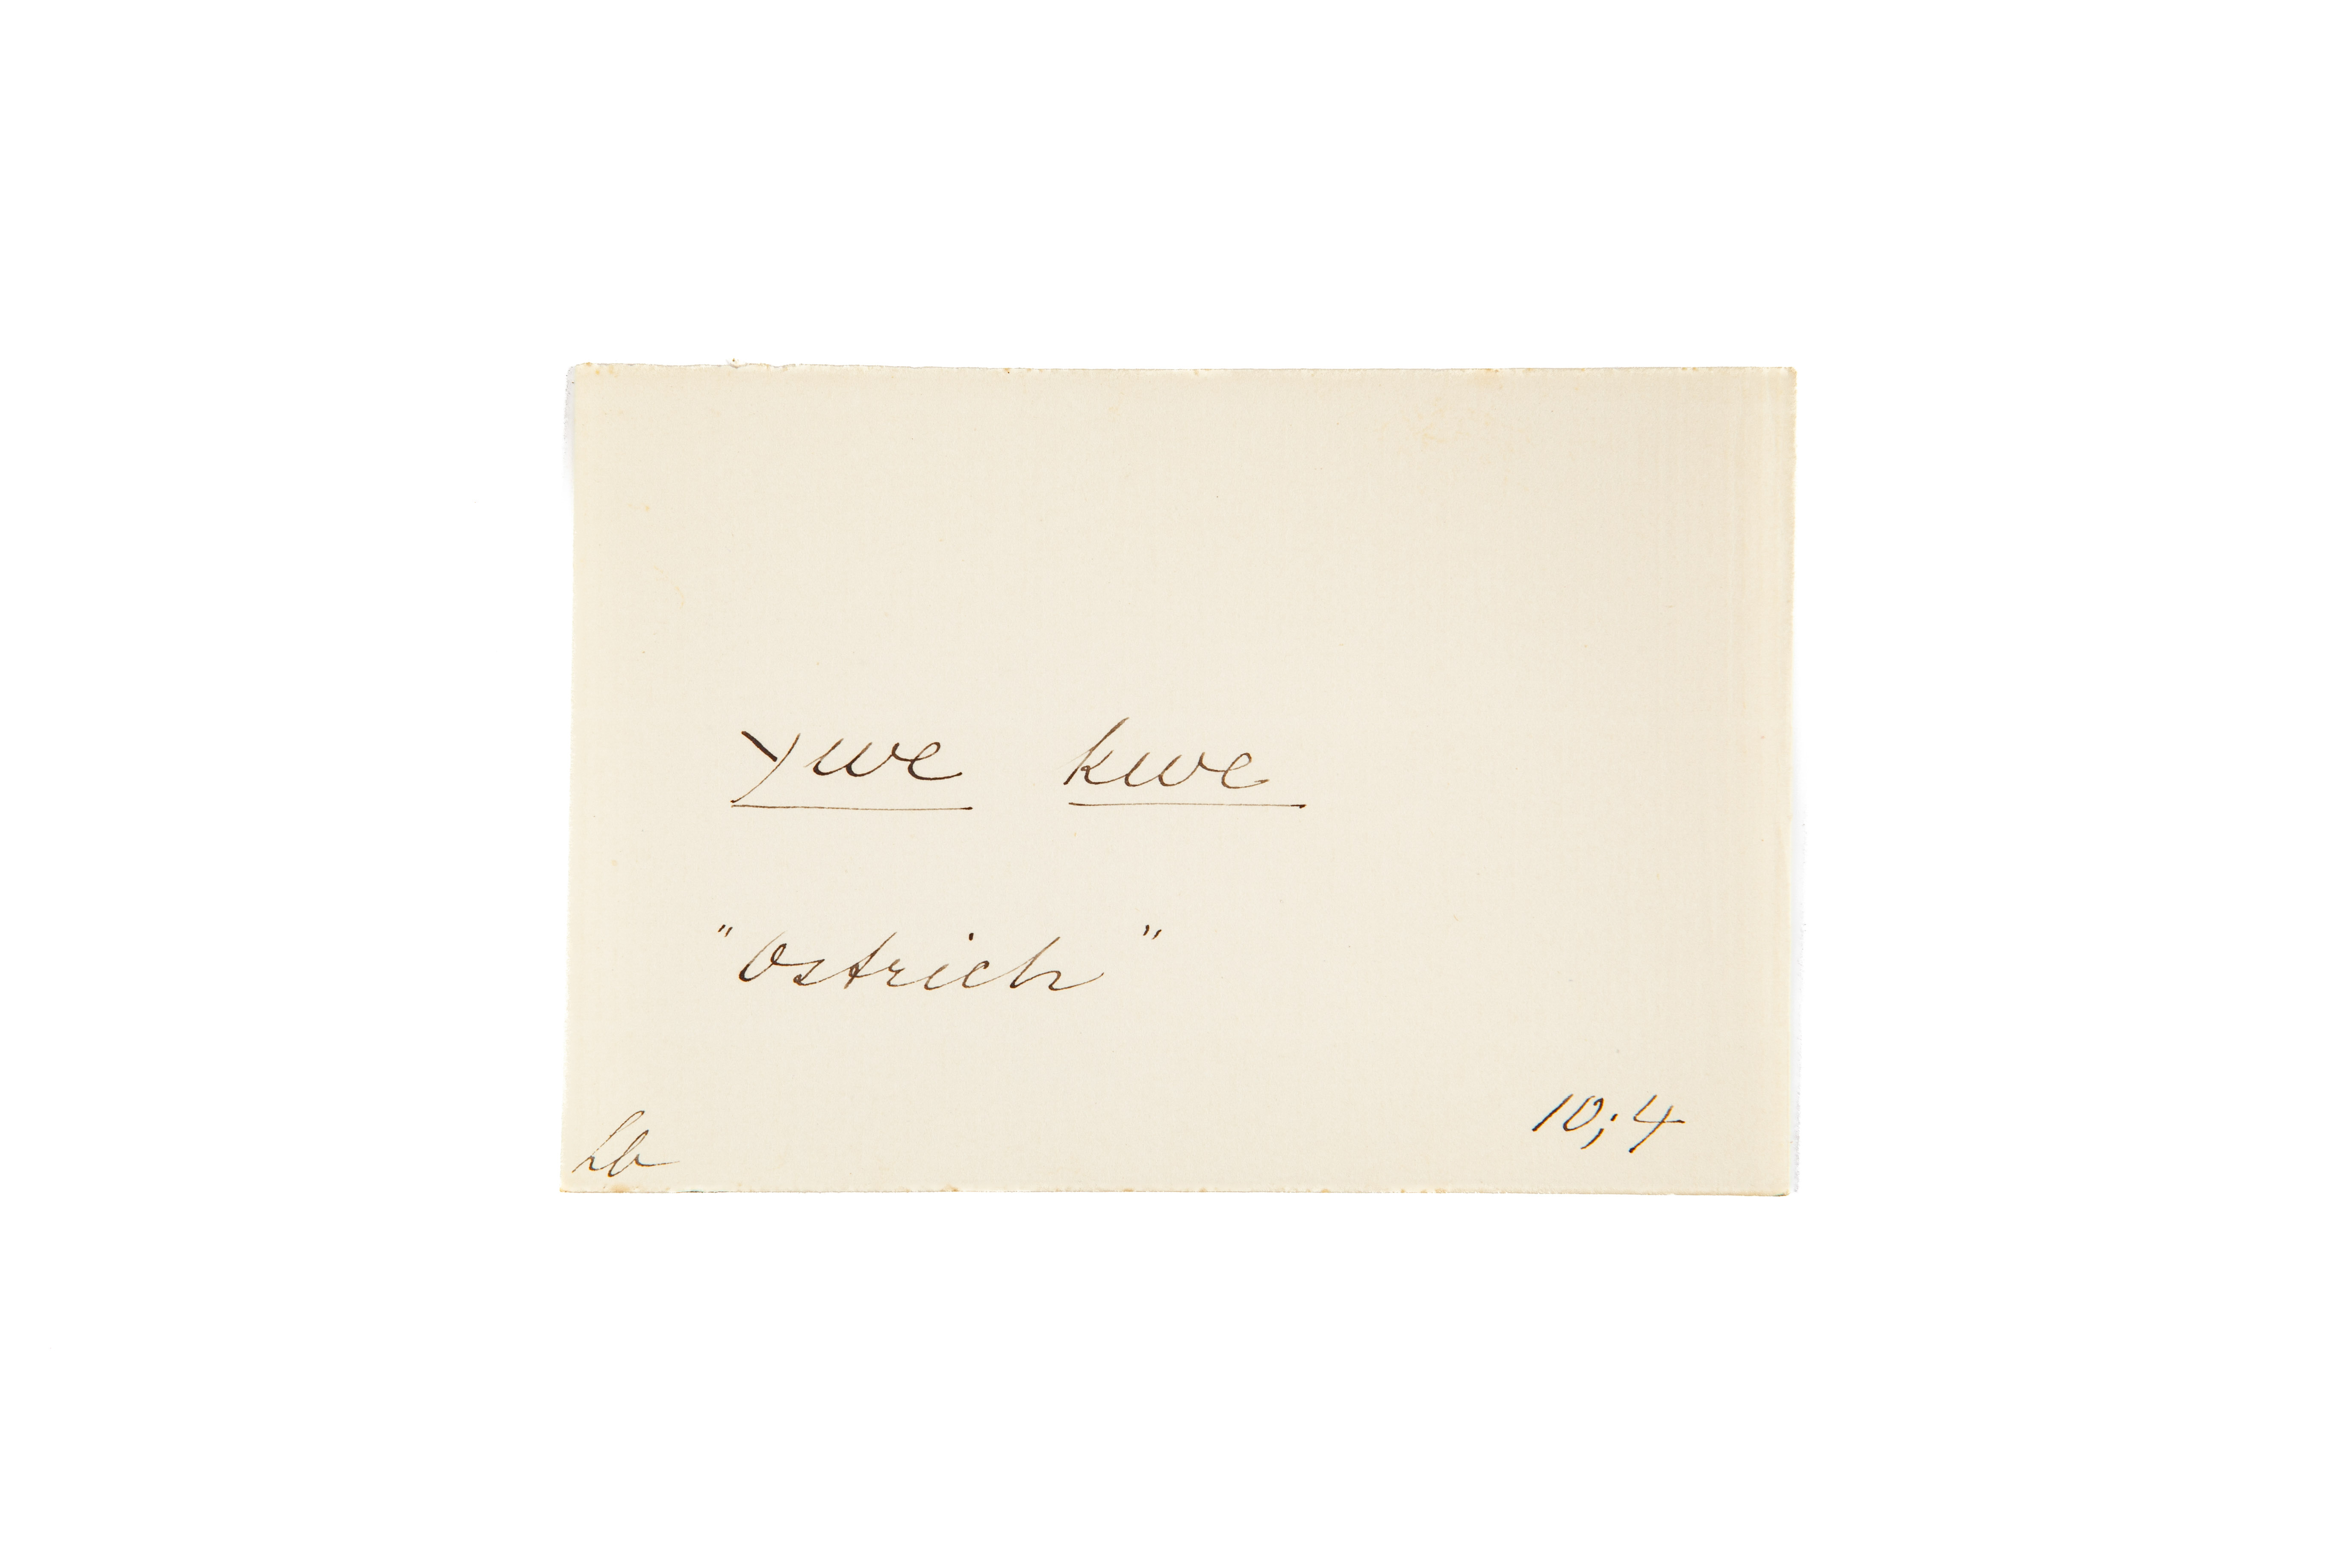 ɣwe kwe
"Ostrich"
Lb 10;4